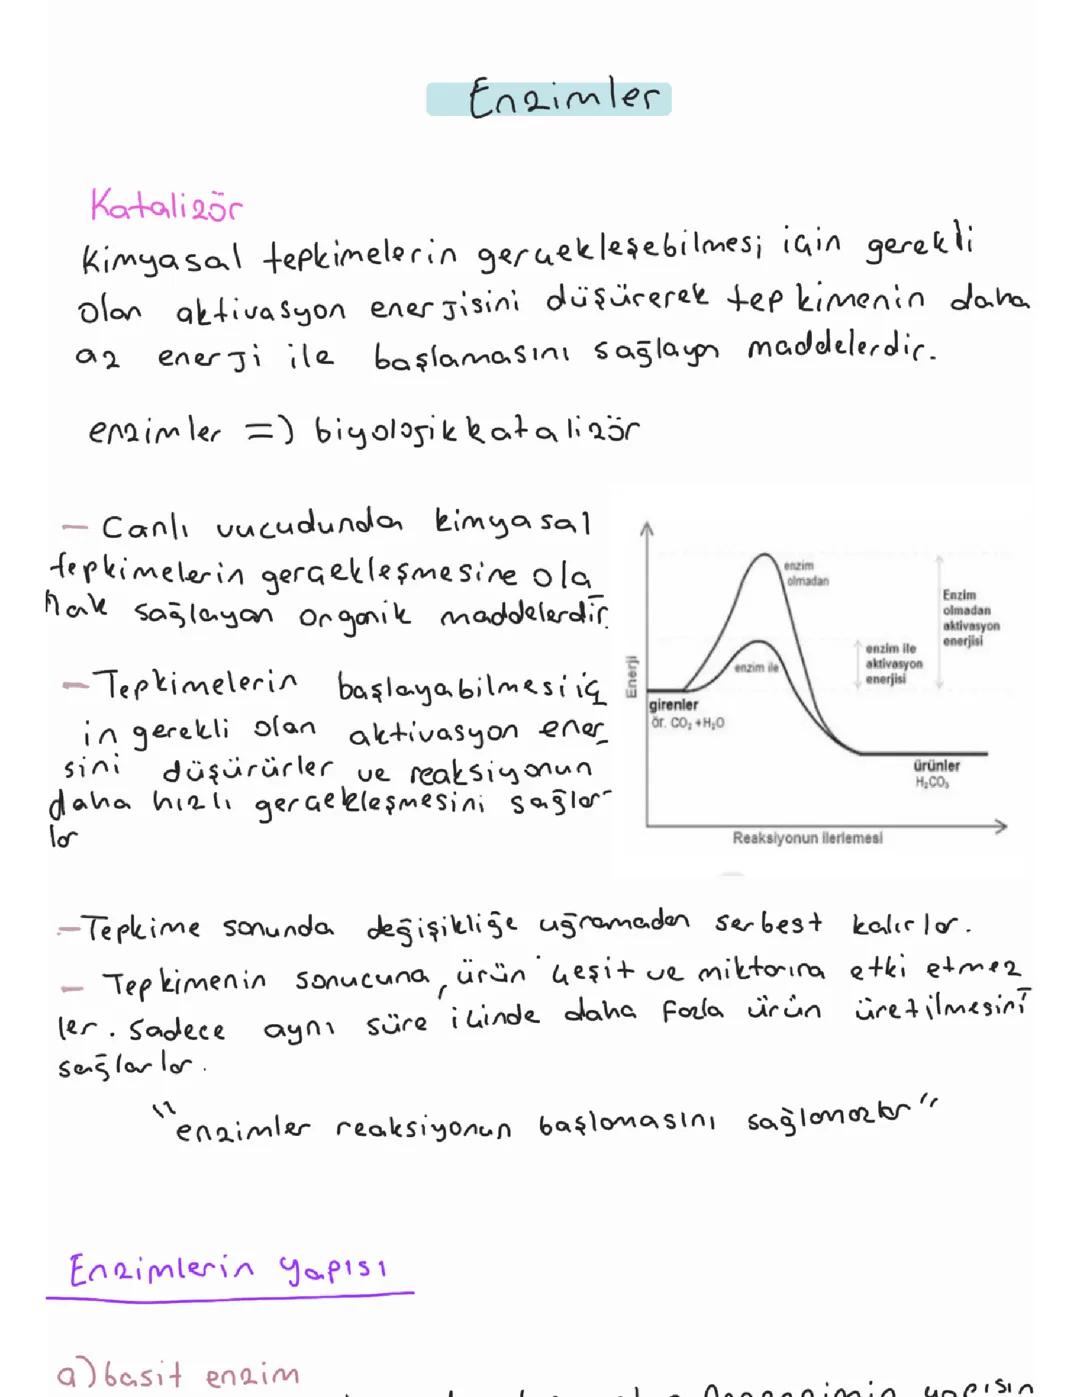 Enzimler
Katalizör
Kimyasal tepkimelerin gerçekleşebilmesi için gerekli
olan aktivasyon enerjisini düşürerek tepkimenin daha
az enerji ile başlamasını sağlayan maddelerdir.
enzimler => biyolojik katalizör
- Canlı vucudunda kimyasal
tepkimelerin gerçekleşmesine ola
nak sağlayan organik maddelerdir.
- Tepkimelerin başlayabilmesi iç
in gerekli olan aktivasyon ener
sini düşürürler ve reaksiyonun
daha hızlı gerçekleşmesini sağlar-
lar
Enerji
enzim
olmadan
enzim ile
girenler
ör. CO₂ +H₂O
enzim ile
aktivasyon
enerjisi
Enzim
olmadan
aktivasyon
enerjisi
ürünler
H₂CO₃
Reaksiyonun ilerlemesi
- Tepkime sonunda değişikliğe uğramadan serbest kalırlar.
- Tepkimenin sonucuna, ürün çeşit ve miktarına etki etmez
ler. Sadece aynı süre içinde daha fazla ürün üretilmesini
sağlarlar.
"enzimler reaksiyonun başlamasını sağlamazlar"
Enzimlerin yapısı
a) basit enzim